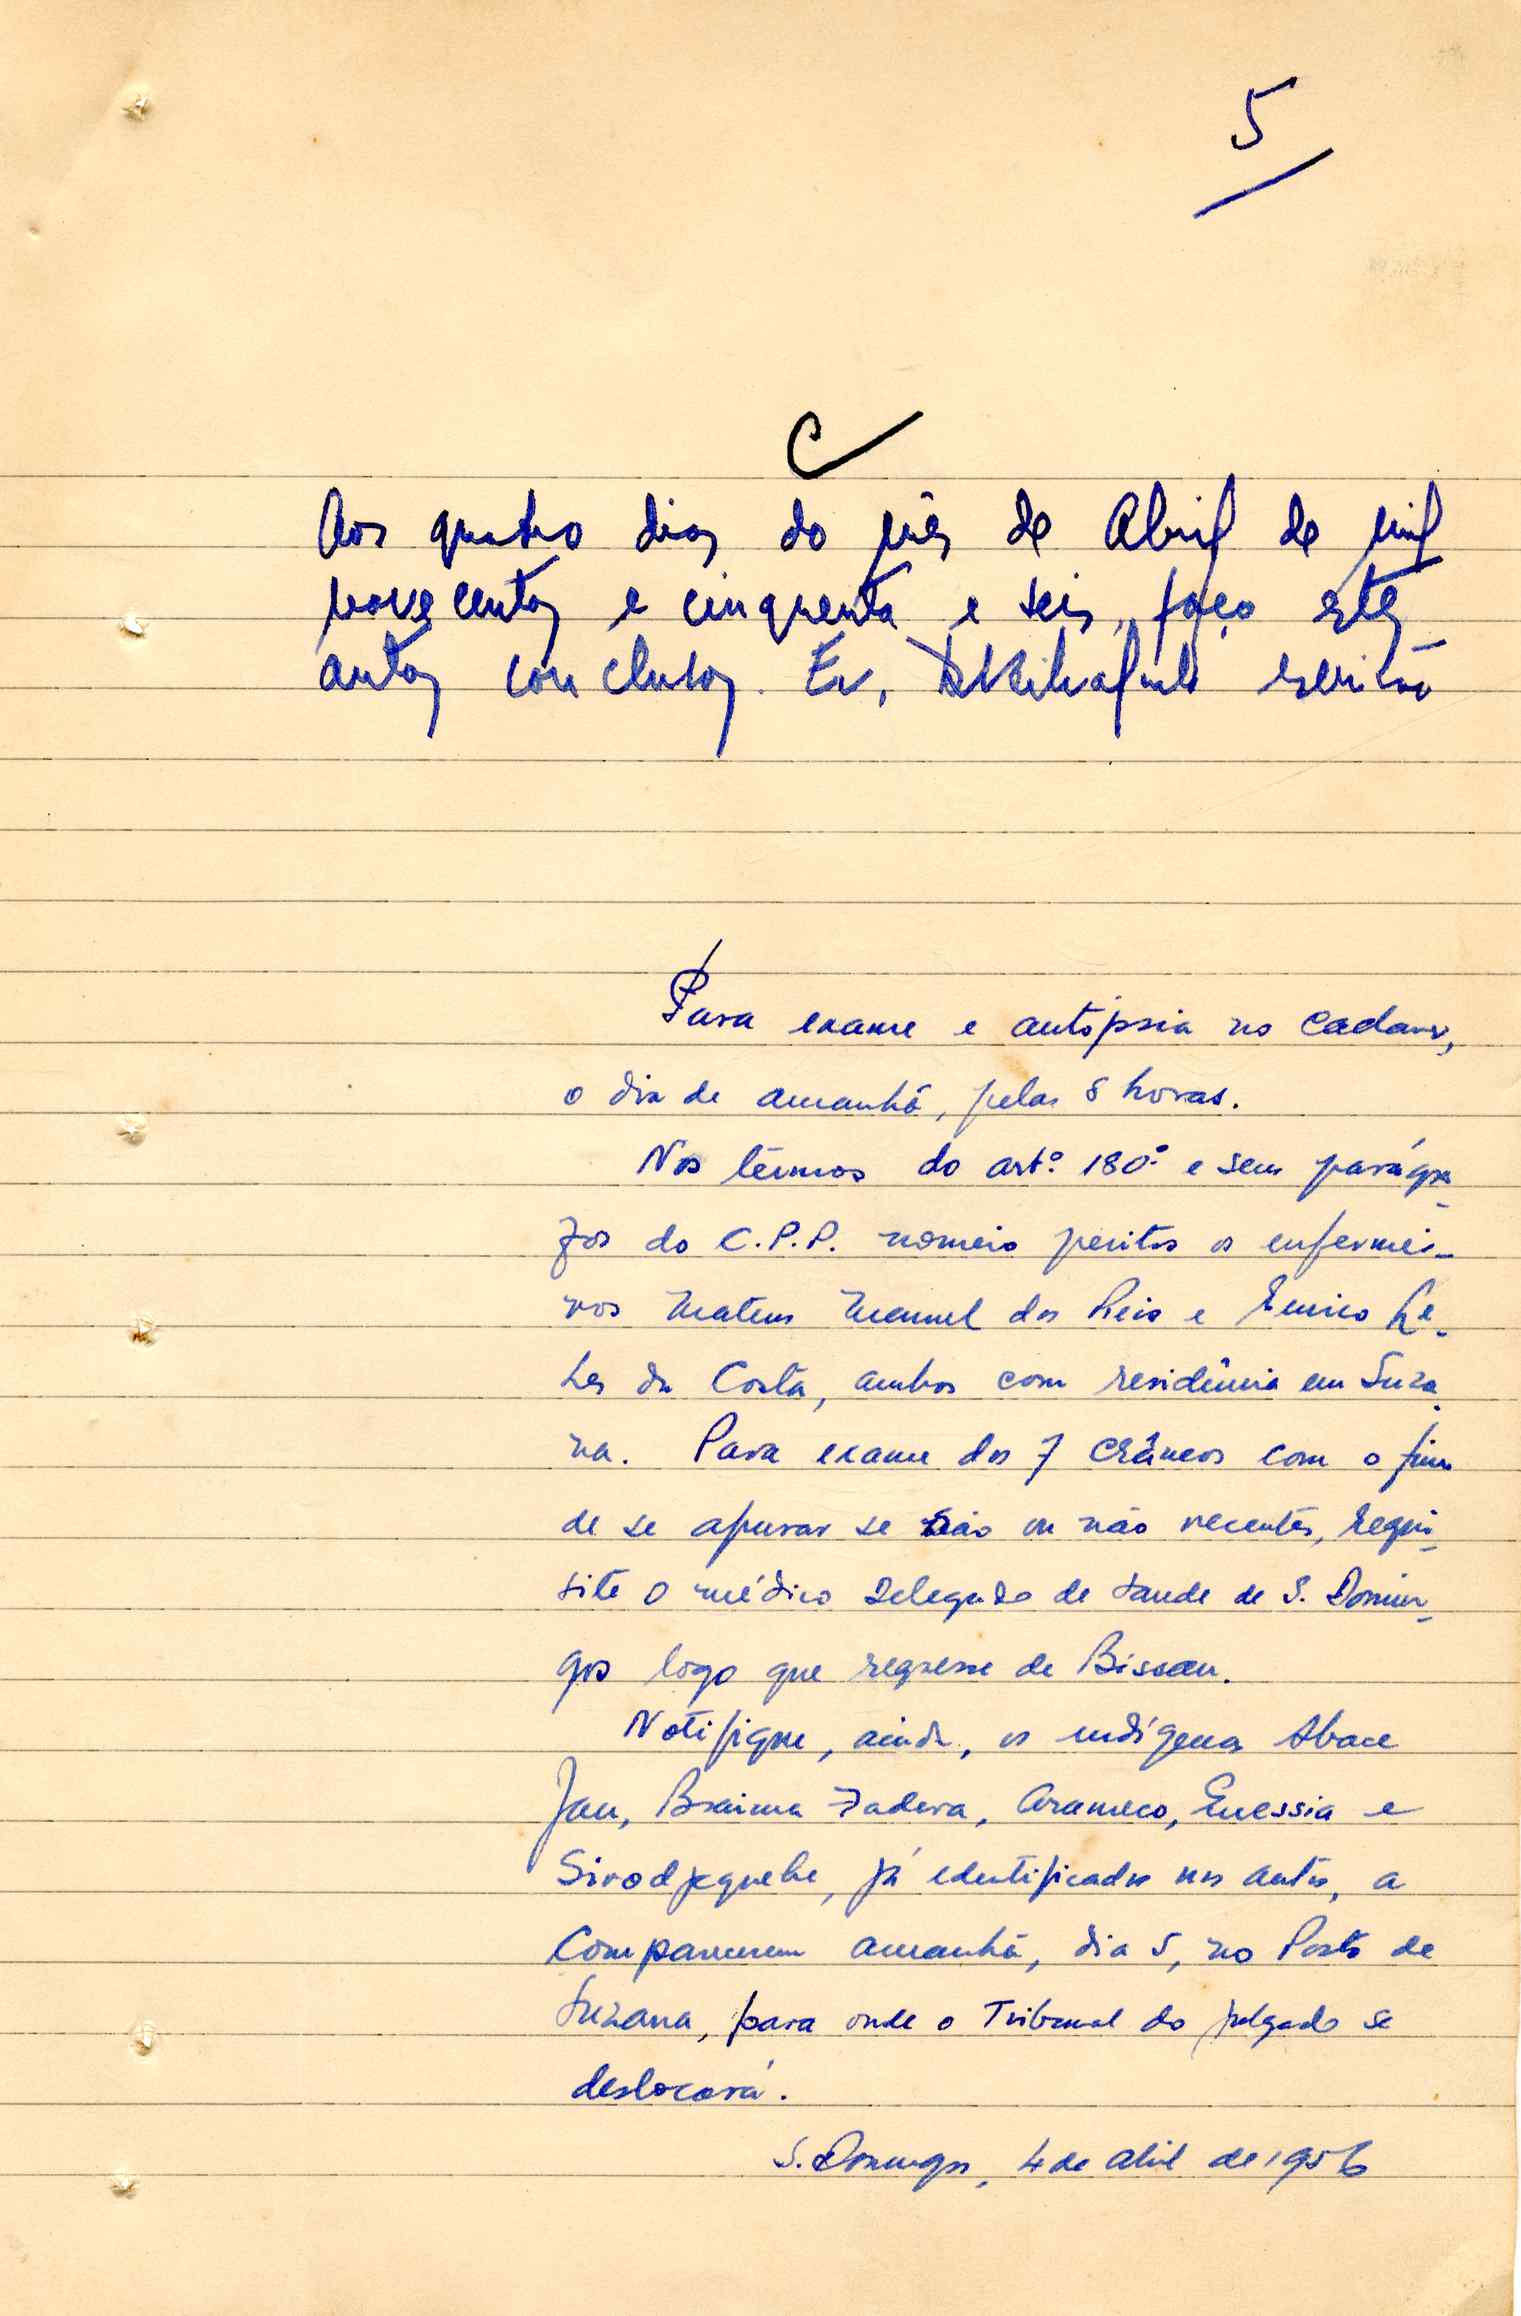 5
C
Aos quatro dias do mês de Abril de mil
novecentos e cinquenta e seis, faço estes
autos conclusos. Eu, escrivão
Para exame e autópsia no cadaver,
o dia de amanhã, pelas 8 horas.
Nos têrmos do artº. 180º e seus parágra-
fos do C.P.P. nomeio peritos os enfermei-
ros Mateus Manuel dos Reis e Eurico Te-
les da Costa, ambos com residência em Suza-
na. Para exame dos 7 crâneos com o fim
de se apurar se são ou não recentes, requi-
site o médico Delegado de Saude de S. Domin-
gos logo que regresse de Bissau.
Notifique, ainda, os indígenas Abace
Jau, Braima Fadera, Arameco, Enessia e
Sirodjequebe, já edentificados nos autos, a
comparecerem amanhã, dia 5, no Posto de
Suzana, para onde o Tribunal do julgado se
deslocará.
S. Domingos, 4 de Abril de 1956